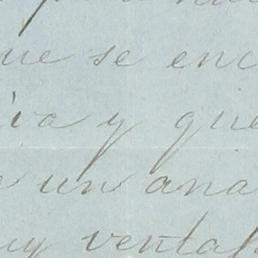 ue se enc
iva y que
e un ana
uy ventaj